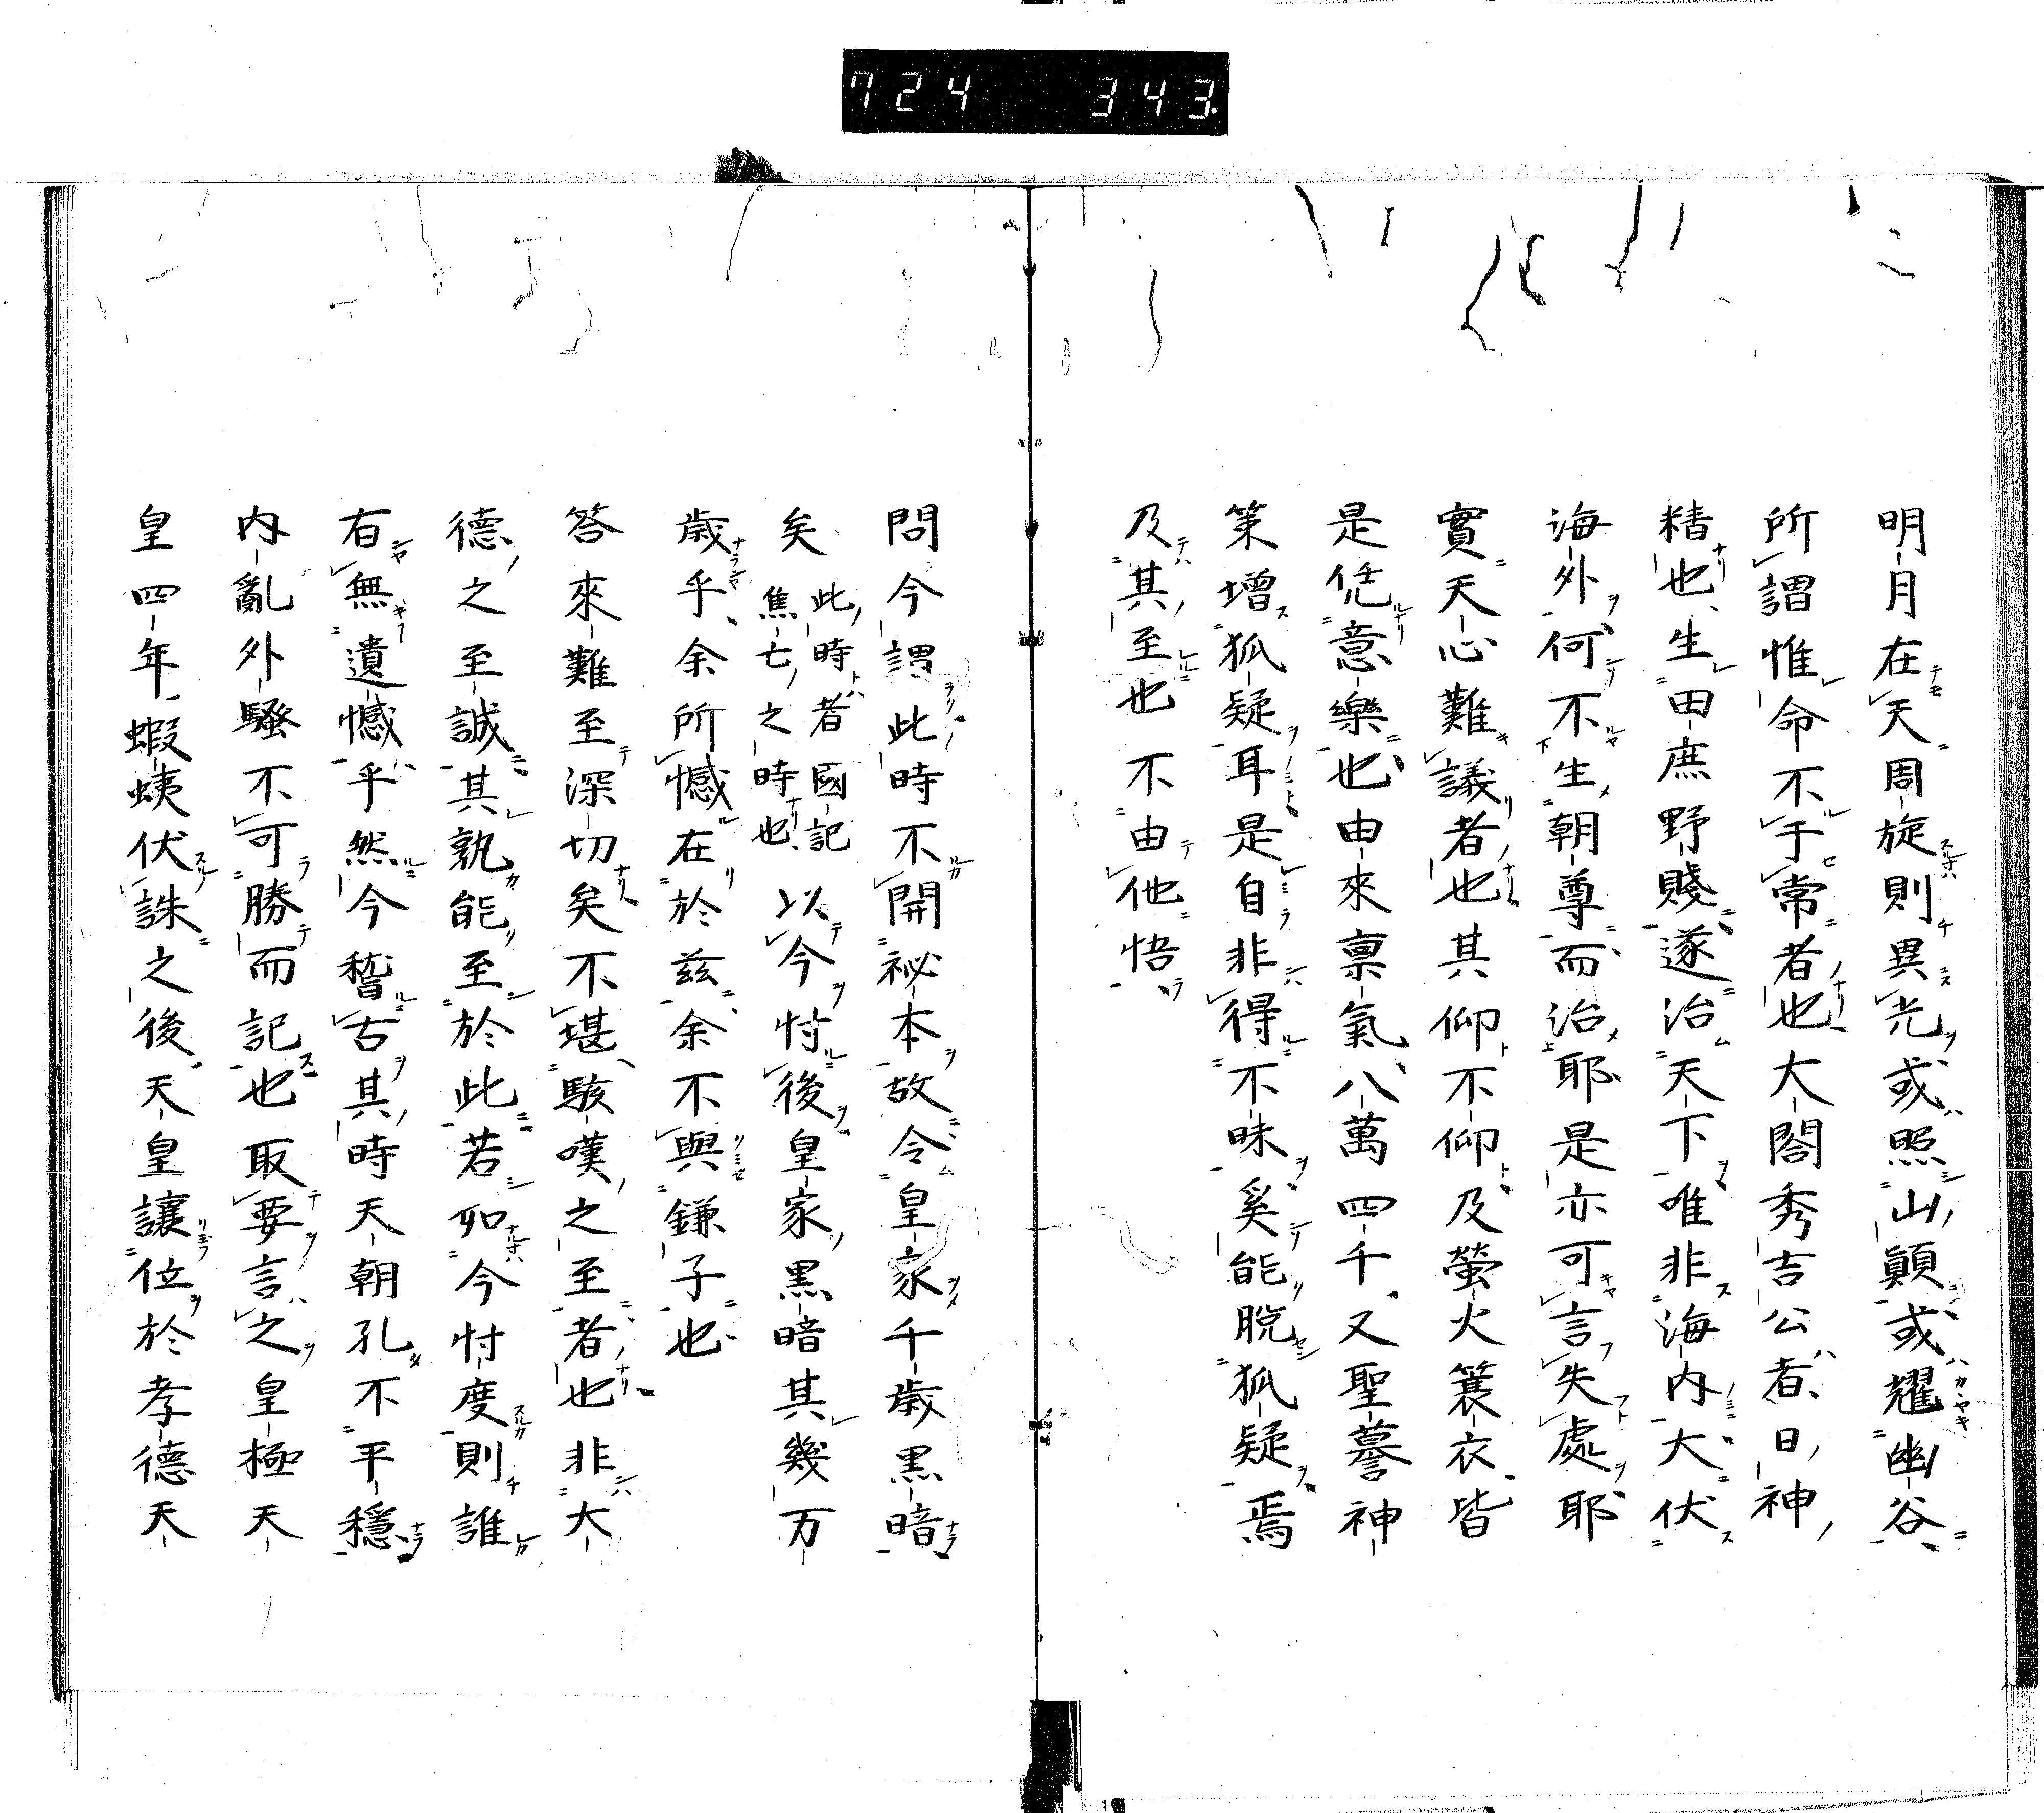 724 343
明月在天周旋則異光或照山顚或耀幽谷
所謂惟命不于常者也大閤秀吉公者日神
精也生田庶野賤遂治天下唯非海内大伏
海外何不生朝尊而治耶是亦可言失處耶
實天心難議者也其仰不仰及螢火簑衣皆
是恁意樂也由來禀氣八萬四千又聖謩神
策增狐疑耳是自非得不昧奚能脱狐疑焉
及其至也不由他悟
問今謂此時不開祕本故令皇家千歳黒暗
矣此時者國記焦亡之時也以今忖後皇家黒暗其幾万
歳乎余所憾在於茲余不與鎌子也
答來難至深切矣不堪駭嘆之至者也非大
德之至誠其孰能至於此若如今忖度則誰
有無遺憾乎然今稽古其時天朝孔不平穩
内亂外騷不可勝而記也取要言之皇極天
皇四年蝦蛦伏誅之後天皇讓位於孝德天